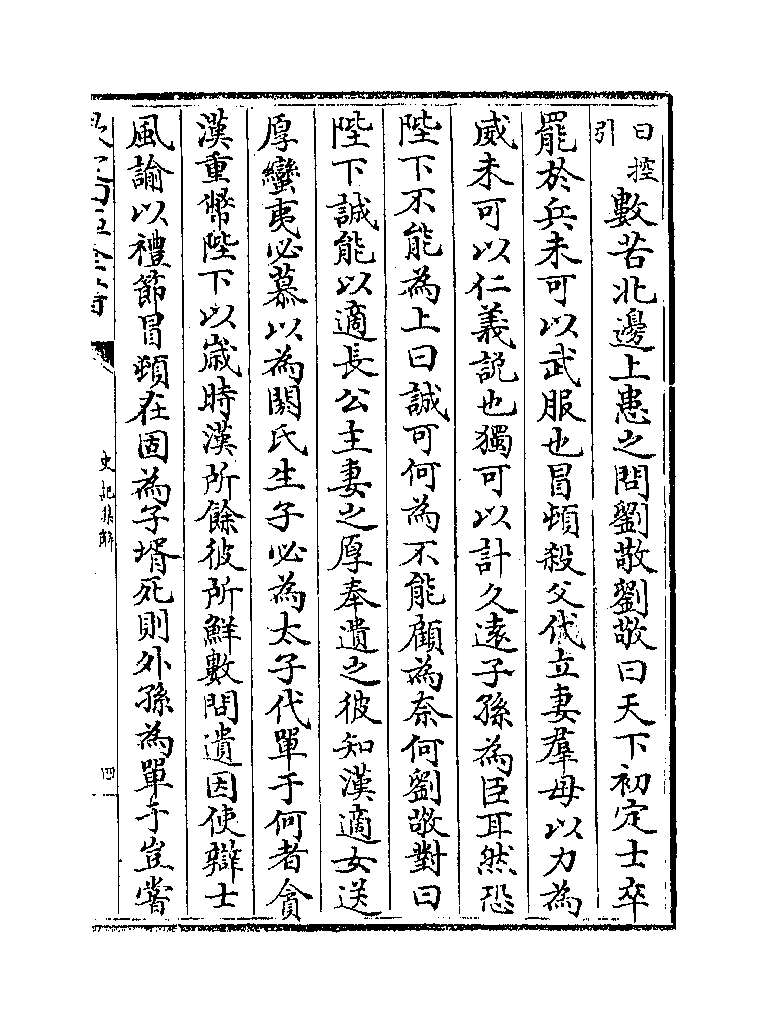 曰控引數苦北邊上患之問劉敬劉敬曰天下初定士卒
罷於兵未可以武服也冒頓殺父代立妻羣母以力為
威未可以仁義説也獨可以計久逺子孫為臣耳然恐
陛下不能為上曰誠可何為不能顧為奈何劉敬對曰
陛下誠能以適長公主妻之厚奉遺之彼知漢適女送
厚蠻夷必慕以為閼氏生子必為太子代單于何者貪
漢重幣陛下以嵗時漢所餘彼所鮮數問遺因使辯士
風諭以禮節冒頓在固為子壻死則外孫為單于豈嘗
史記集解
四